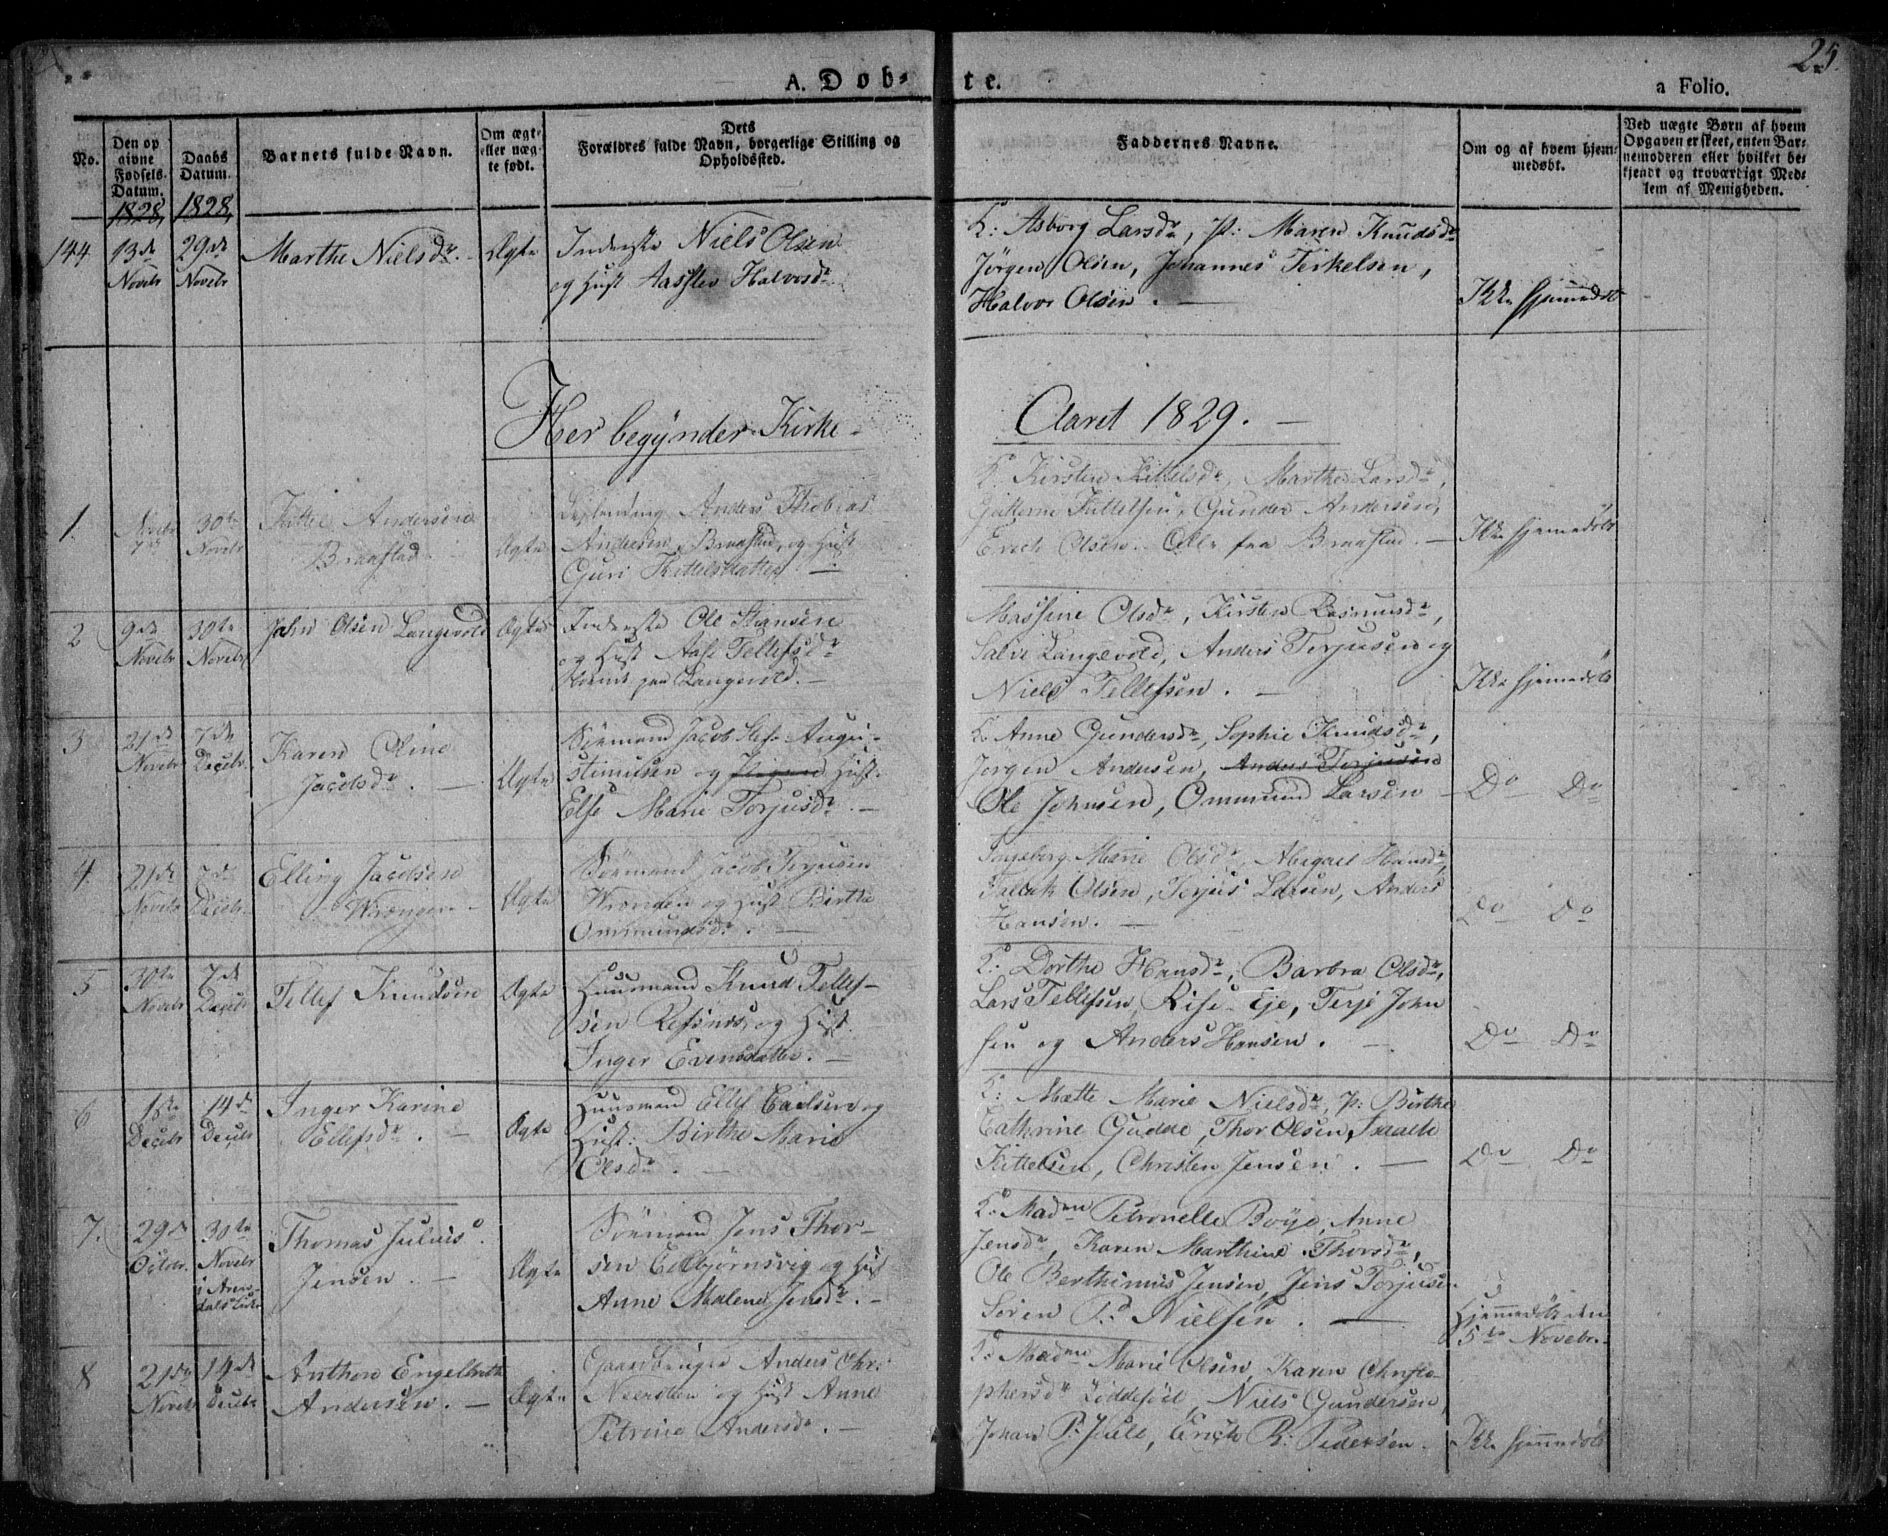 25.
A. Døb-te.
a Folio.
No.
Den op
givne
Fødsels
Datum.
1828,
Daabs
Datum.
1828,
Barnets fulde Navn.
Om ægte
eller uæg-
te født.
Dets
Forældres fulde Navn, borgerlige Stilling og
Opholdssted.
Faddernes Navne.
Om og af hvem hjem-
medøbt.
Ved uægte Børn af hvem
Opgaven er skeet, enten Bar-
nemoderen eller hvilket be-
kjendt og troværdigt Med-
lem af Menigheden.
144
13de
Novebr
29de
Novebr
Marthe Nielsdr.
Ægte
Inderste Niels Olsen
og Hust Halvorsdr
K: Asborg Larsdr, P: Maren Knudsdr
Jørgen Olsen, Johannes Terkelsen,
Halvor Olsen. —
Ikke hjemmedøbt
Her begynder Kirke-
Aaret 1829. —
1.
Novebr
30te
Novebr
Kittel Andersen
Braastad
Ægte
Anders Thobias
Andersen Braastad, og Hust
Guri Kittelsdatter. —
K. Kirsten Kittelsdr, Marthe Larsdr,
Kittelsen, Gunder Andersen,
Erich Olsen. Alle fra Braastad. —
Ikke hjemmedøbt
2
9de
Novebr
30te
Novebr
John Olsen Langevold
Ægte
Inderste Ole Hansen
og Hust Aase Tellefsdr
paa Langevold. —
Olsdr, Kirsten Rasmusdr,
Salve Langevold, Anders Terjusen og
Niels Tellefsen. —
Ikke hjemmedøbt
3
21de
Novebr
7de
Decebr.
Karen Oline
Jacobsdr. —
Ægte
Sømand Jacob Augu-
stinusen og Hust.
Else Marie Torjusdr. —
K. Anne Gundersdr, Sophie Knudsdr,
Jørgen Andersen, Anders Terjusen
Ole Johnsen, Ommund Larsen —
Do Do
4.
21de
Novebr
7de
Decebr.
Elling Jacobsen
Wrængen
Ægte
Sømand Jacob Terjusen
Wrængen og Hust Birthe
Ommundsdr. —
Ingeborg Marie Olsdr, Abigael Hansdr,
Tallak Olsen, Terjus Larsen, Anders
Hansen. —
Do Do
5
30te
Novebr
7de
Decebr
Tellef Knudsen
Ægte
Huusmand Knud Tellef-
sen Refsnes, og Hust.
Inger Evensdatter. —
K: Dorthe Hansdr, Barbra Olsdr,
Lars Tellefsen, Rise-Eje, Terje John
sen og Anders Hansen. —
Do Do
6
1ste
Decebr
14de
Decebr
Inger Karine
Ellefsdr. —
Ægte
Huusmand Ellef og
Hust: Birthe Marie
Olsdr. —
K: Mætte Marie Nielsdr, P: Birthe
Cathrine Gudde, Thor Olsen, Isaach
Kittelsen, Christen Jensen. —
Do Do
7.
29de
Octbr.
30te
Novebr
i Aren-
dals Kirke
Thomas Julius
Jensen. —
Ægte
Sømand Jens Thor-
sen Eidbjørnsvig og Hust
Anne Malene Jensdr. —
K. Madme Petronelle Boye, Anne
Jensdr, Karen Marthine Thorsdr,
Ole Berthinius Jensen, Jens Torjusen
Søren P. Nielsen. —
Hjemmedøbt den
5te Novebr.
8
21de
Novebr
14de
Decebr
Anthon Engelbreth
Andersen. —
Ægte
Gaardbruger Anders Chr:
Neersteen og Hust Anne
Petrine Andersdr. —
K. Madme Marie Olsen, Karen Christo-
phersdr Løddesøel, Niels Gundersen,
Johan P. Juell, Erich R. Pedersen.
Ikke hjemmedøbt